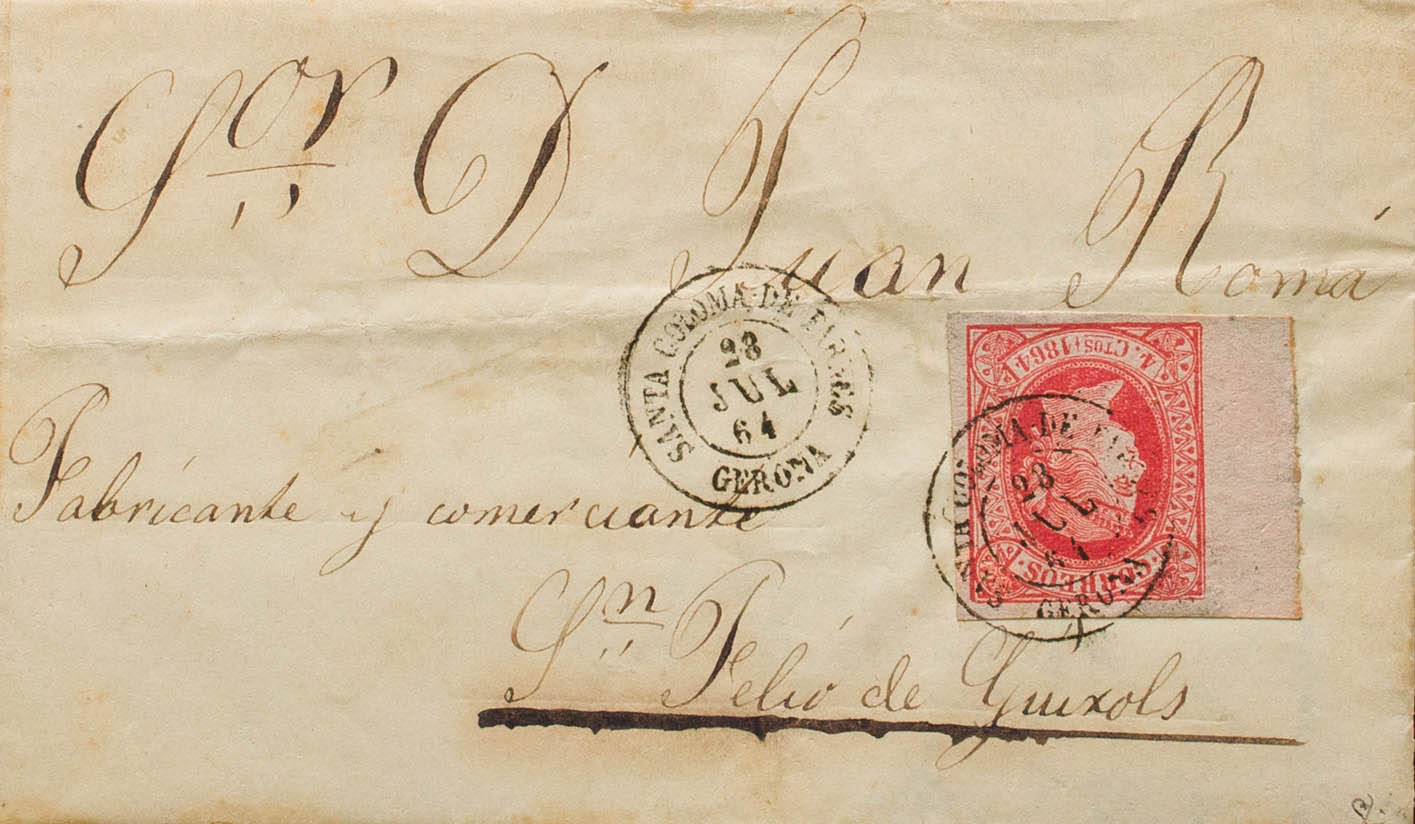 Sor D Juan Romá
SANTA COLOMA DE FARNES
28
JUL
64
GERONA
4 CTOS 1864
CORREOS
SANTA COLOMA DE
28
GERONA
Fabricante y comerciante
Sn Felió de Guixols